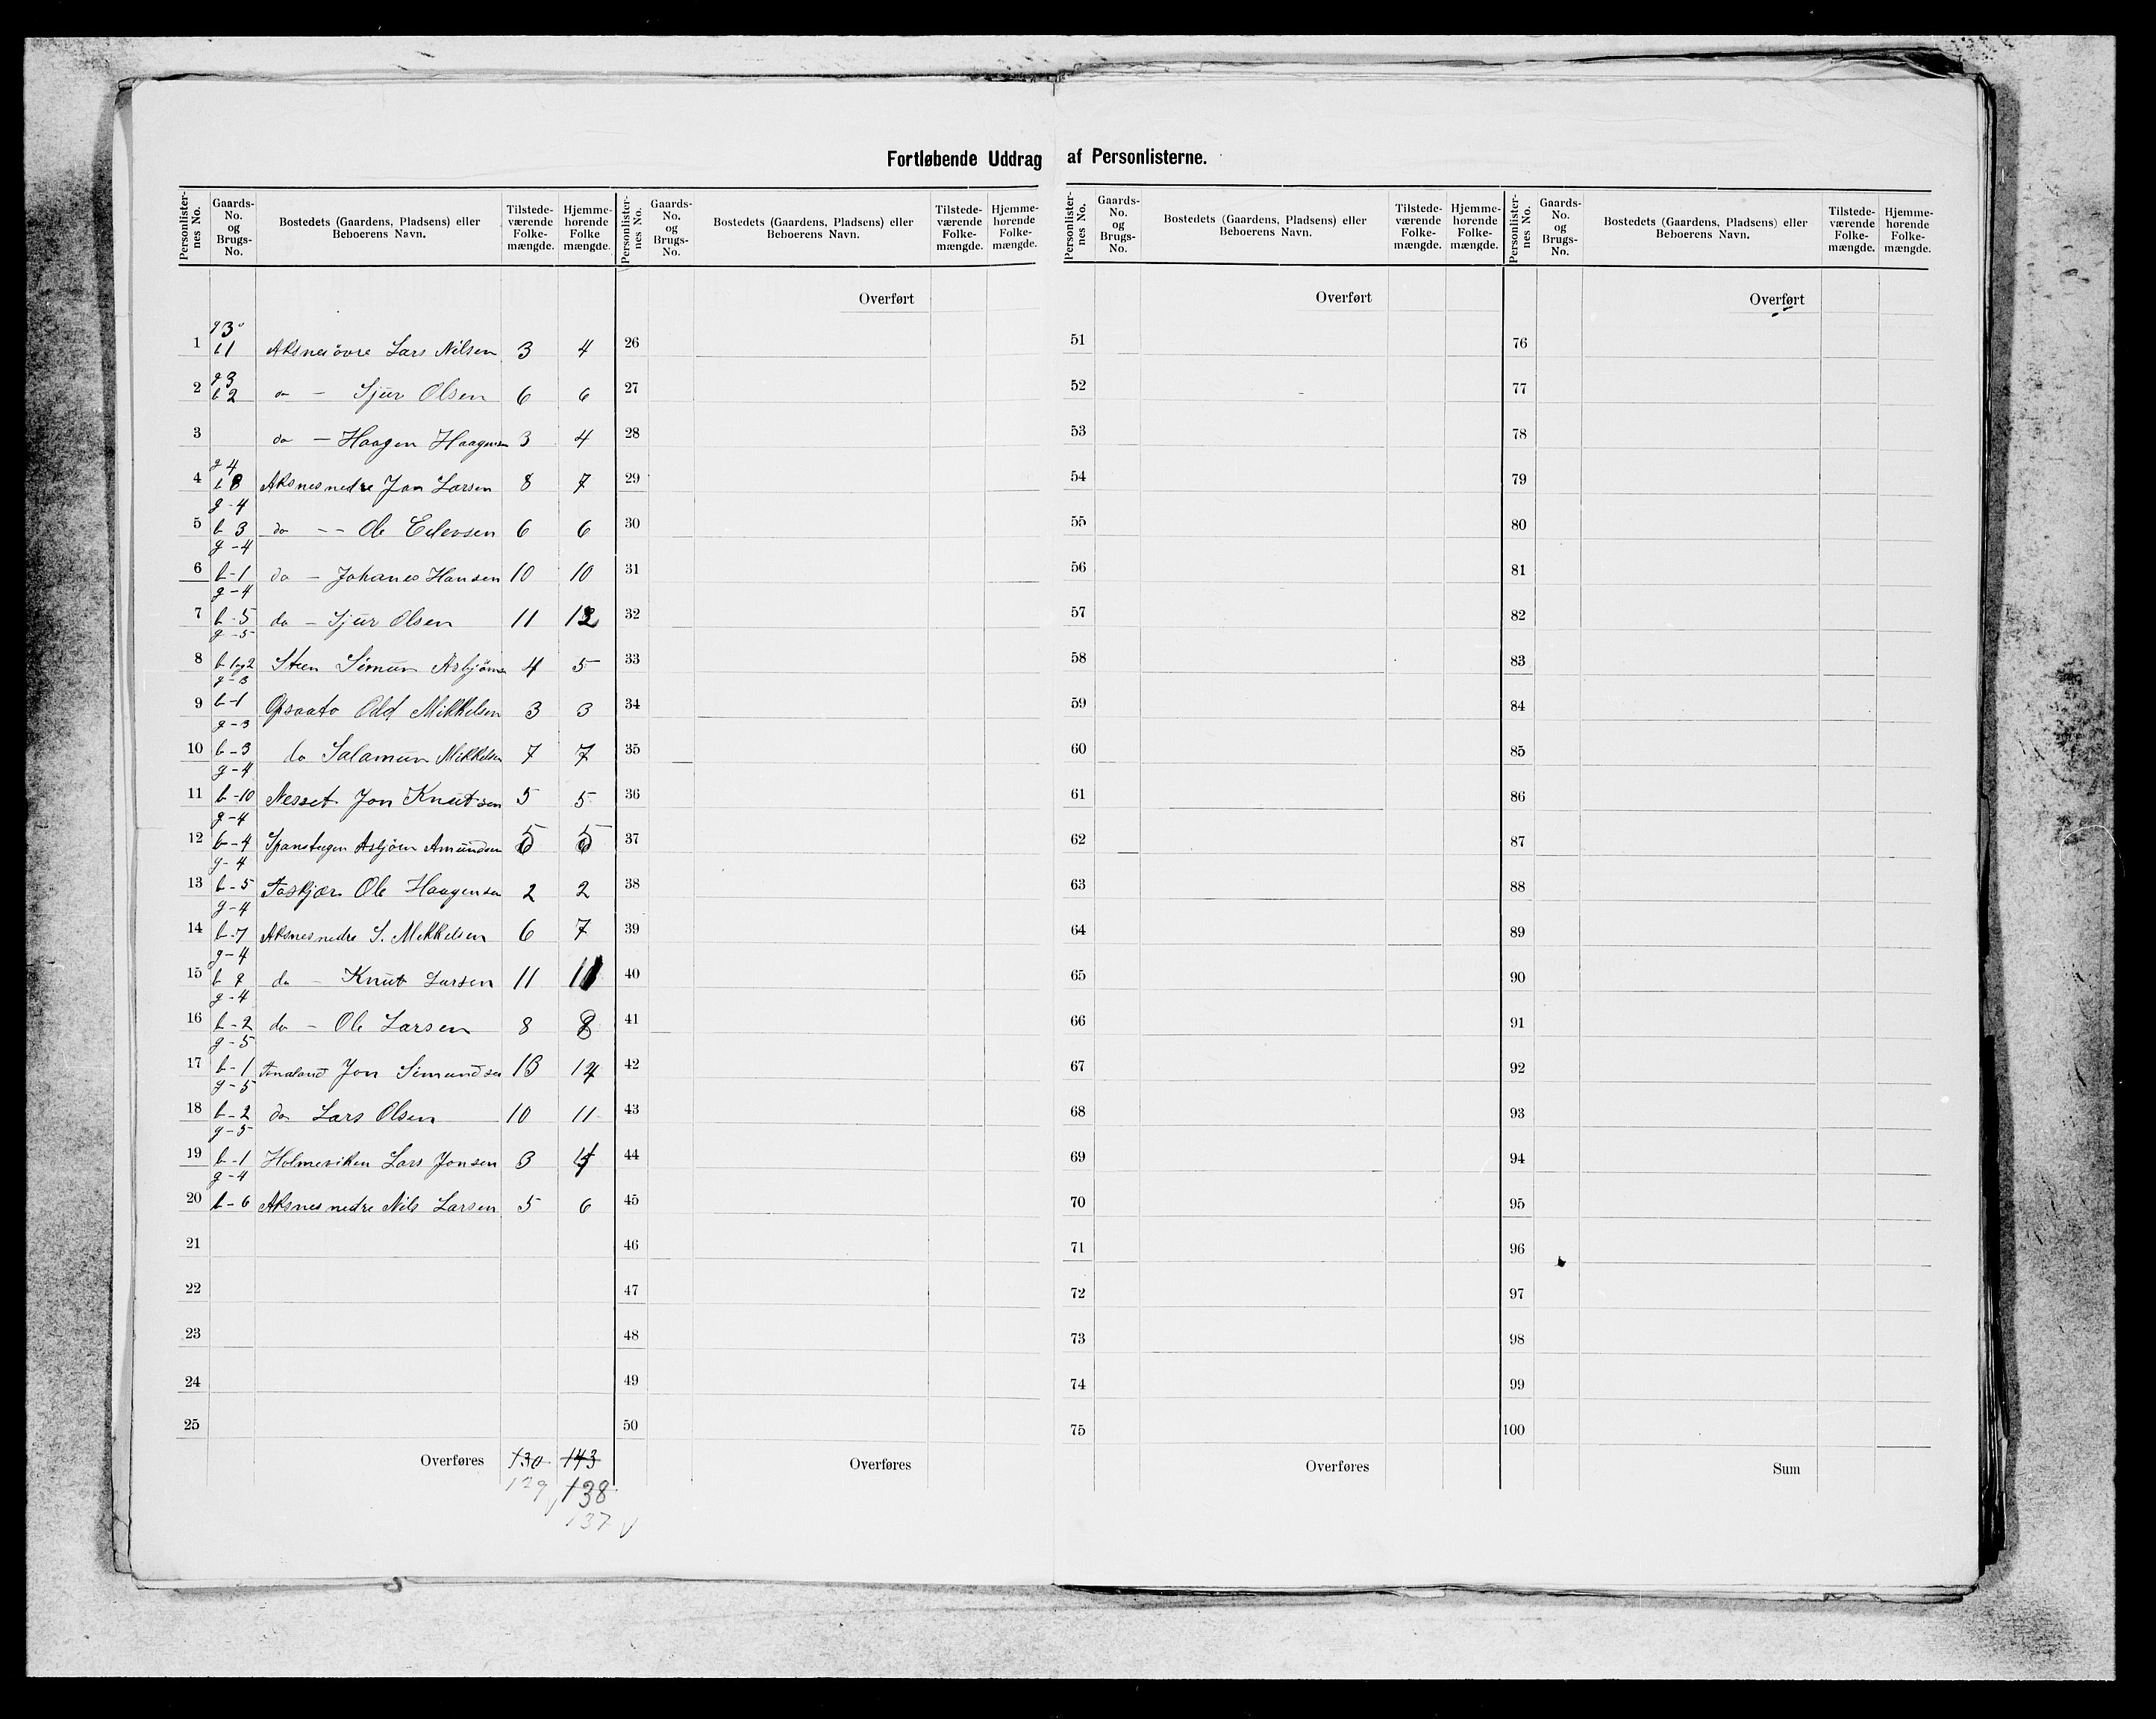 Fortløbende Uddrag af Personlisterne.
Personlisternes No. Gaards-No. og Brugs-No. Bostedets (Gaardens, Pladsens) eller Beboerens Navn. Tilstedeværende Folkemængde. Hjemmehørende Folkemængde.
g 3
1 b 1 Aksnes övre Lars Nilsen 3 4
g 3
2 b 2 do - Sjur Olsen 6 6
3 do - Haagen Haagensen 3 4
g 4
4 b 8 Aksnes nedre Jon Larsen 8 7
g-4
5 b 3 do -- Ole Eilevsen 6 6
g-4
6 b-1 do - Johanes Hansen 10 10
g-4
7 b-5 do - Sjur Olsen 11 12
g-5
8 b 1og2 Steen Simun Asbjörns 4 5
g-3
9 b-1 Opsaato Odd Mikkelsen 3 3
g-3
10 b-3 do Salamun Mikkelsen 7 7
g-4
11 b-10 Nesset Jon Knutsen 5 5
g-4
12 b-4 Asbjörn Amundsen 5 5
g-4
13 b-5 Ole Haagensen 2 2
g-4
14 b-7 Aksnes nedre S. Mikkelsen 6 7
g-4
15 b 9 do - Knut Larsen 11 11
g-4
16 b-2 do - Ole Larsen 8 8
g-5
17 b-1 Jon Simundsen 13 14
g-5
18 b-2 do Lars Olsen 10 11
g-5
19 b-1 Holmeviken Lars Jonsen 3 4
g-4
20 b-6 Aksnes nedre Nils Larsen 5 6
21
22
23
24
25
Overføres 130 143
129 138
137
Personlisternes No. Gaards-No. og Brugs-No. Bostedets (Gaardens, Pladsens) eller Beboerens Navn. Tilstedeværende Folkemængde. Hjemmehørende Folkemængde.
Overført
26
27
28
29
30
31
32
33
34
35
36
37
38
39
40
41
42
43
44
45
46
47
48
49
50
Overføres
Personlisternes No. Gaards-No. og Brugs-No. Bostedets (Gaardens, Pladsens) eller Beboerens Navn. Tilstedeværende Folkemængde. Hjemmehørende Folkemængde.
Overført
51
52
53
54
55
56
57
58
59
60
61
62
63
64
65
66
67
68
69
70
71
72
73
74
75
Overføres
Personlisternes No. Gaards-No. og Brugs-No. Bostedets (Gaardens, Pladsens) eller Beboerens Navn. Tilstedeværende Folkemængde. Hjemmehørende Folkemængde.
Overført
76
77
78
79
80
81
82
83
84
85
86
87
88
89
90
91
92
93
94
95
96
97
98
99
100
Sum